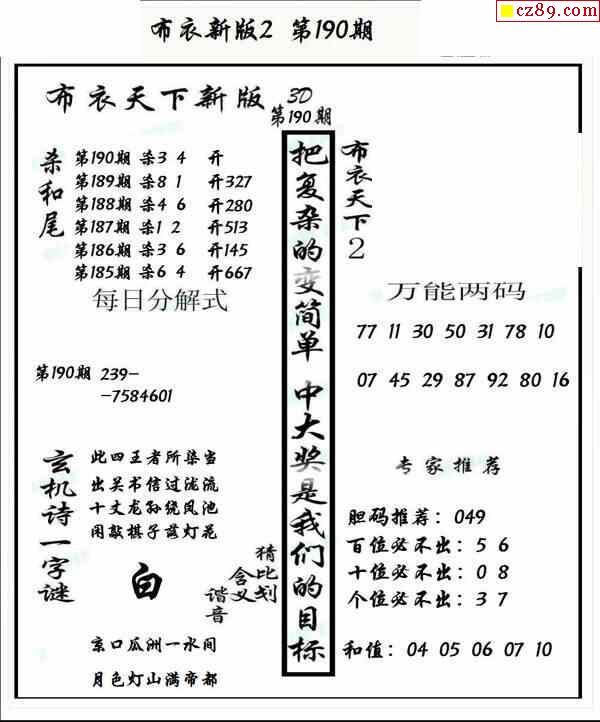 cz89.com
布衣新版2 第190期
布衣天下新版 3D
第190期
杀和尾
第190期 杀3 4 开
第189期 杀8 1 开327
第188期 杀4 6 开280
第187期 杀1 2 开513
第186期 杀3 6 开145
第185期 杀6 4 开667
每日分解式
第190期 239-
-7584601
玄机诗一字谜
此四王者所染当
出吴书信过泷流
十丈龙孙绕凤池
闲敲棋子落灯花
白
猜比划
含义
谐音
京口瓜洲一水间
月色灯山满帝都
把复杂的变简单 中大奖是我们的目标
布衣天下2
万能两码
77 11 30 50 31 78 10
07 45 29 87 92 80 16
专家推荐
胆码推荐：049
百位必不出：5 6
十位必不出：0 8
个位必不出：3 7
和值：04 05 06 07 10